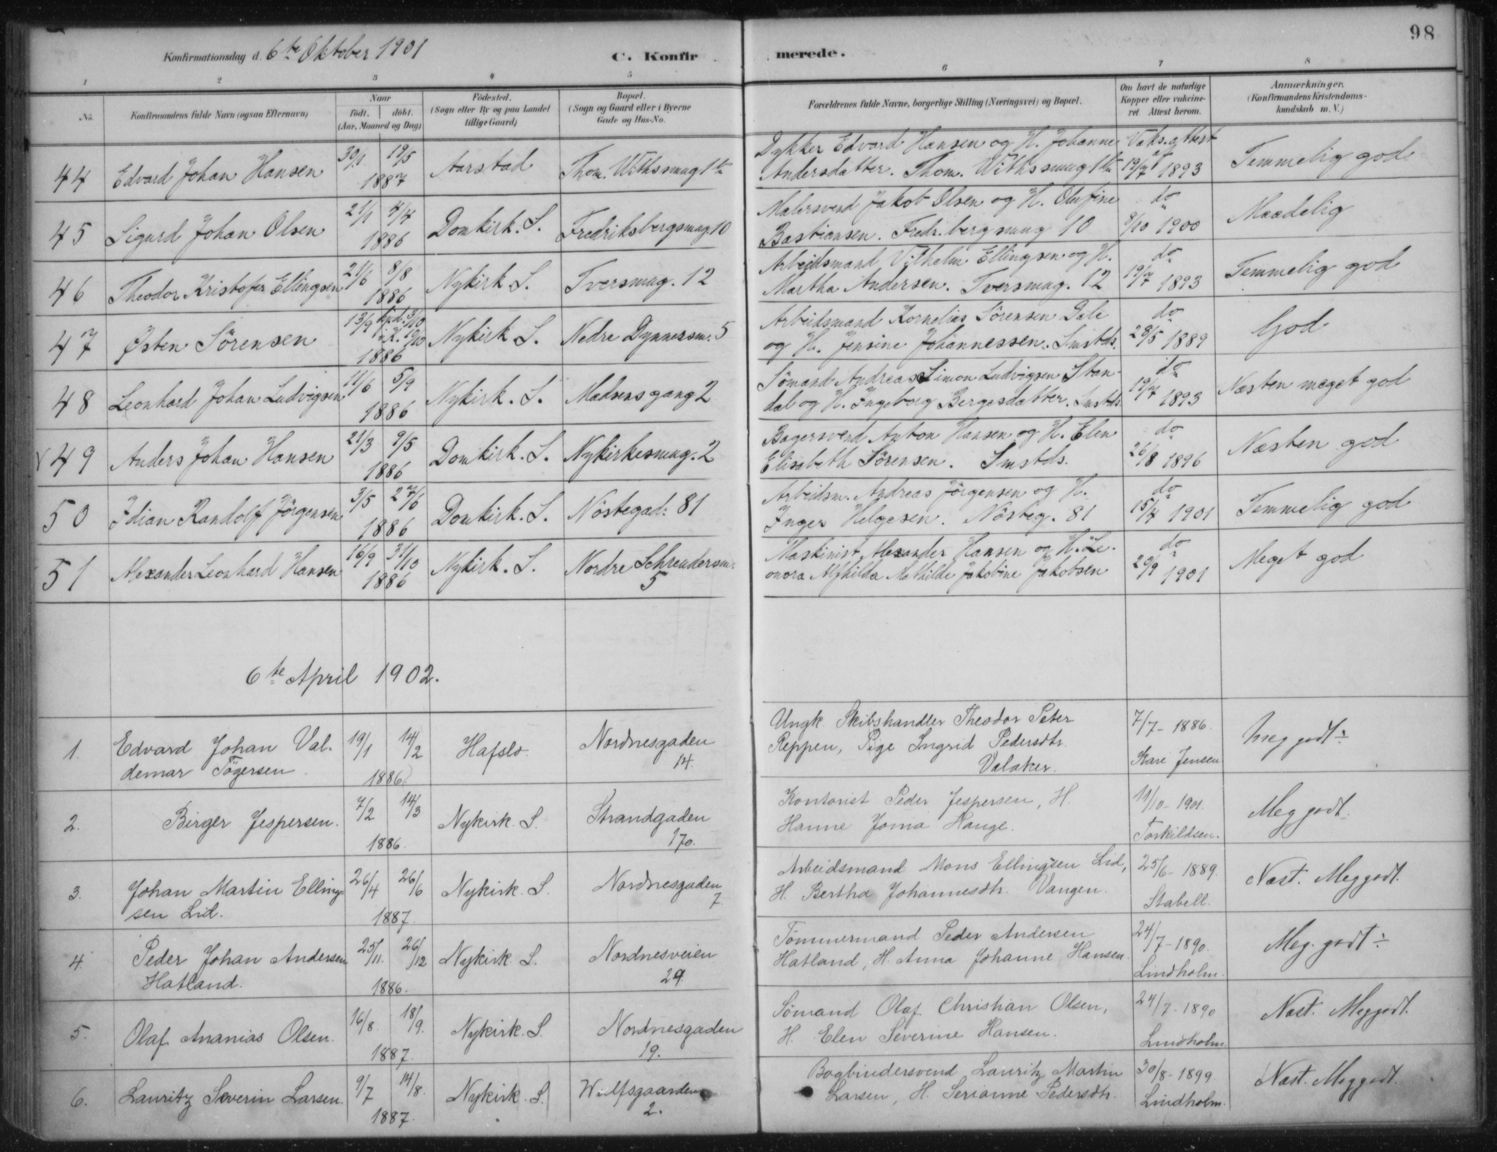 98
Konfirmationsdag d. 6te Oktober 1901 C. Konfir merede.
1 2 3 4 5 6 7 8
No.
Konfirmandens fulde Navn (ogsaa Efternavn)
Naar
født. døbt.
(Aar, Maaned og Dag)
Fødested.
(Sogn eller By og paa Landet
tillige Gaard)
Bopæl.
(Sogn og Gaard eller i Byerne
Gade og Hus-No.
Forældrenes fulde Navne, borgerlige Stilling (Næringsvei) og Bopæl.
Om havt de naturlige
Kopper eller vaccine-
ret. Attest herom.
Anmærkninger.
(Konfirmandens Kristendoms-
kundskab m. V.)
44 Edvard Johan Hansen 30/1 19/5 1887 Aarstad Thom. Withssmug 1te
Dykker Edvard Hansen og H. Johanne
Andersdatter. Thom. Withssmug 1te
Vaks.attest
19/7 1893 Temmelig god
45 Sigurd Johan Olsen 21/1 4/4 1886 Domkirk. S. Fredriksbergsmug 10
Malersvend Jakob Olsen og H. Olufine
Bastiansen. Fredr.bergsmug 10
do
9/10 1900 Maadelig
46 Theodor Kristofer Ellingsen 21/6 8/8 1886 Nykirk S. Tversmug. 12
Arbeidsmand Vilhelm Ellingsen og H.
Martha Andersen. Tversmug. 12
do
19/7 1893 Temmelig god
47 Østen Sörensen 13/9 1886 Nykirk S. Nedre Dynnersm. 5
Arbeidsmand Kornelius Sörensen Dale
og H. Jensine Johannessen. Smstds.
do
28/5 1889 God
48 Leonhard Johan Ludvigsen 11/6 5/9 1886 Nykirk. S. Madsensgang 2
Sömand Andreas Simon Ludvigsen Sten-
dal og H. Ingeborg Bergesdatter. Smstds.
do
19/7 1893 Næsten meget god
49 Anders Johan Hansen 21/3 9/5 1886 Domkirk. S. Nykirkesmug. 2
Bagersvend Anton Hansen og H. Elen
Elisabeth Sörensen. Smstds.
do
26/8 1896 Næsten god
50 Idian Randolf Jörgensen 3/5 27/6 1886 Domkirk. S. Nöstegad: 81
Arbeidsm. Andreas Jörgensen og H.
Inger Helgesen. Nösteg. 81
do
15/4 1901 Temmelig god
51 Alexander Leonhard Hansen 16/9 31/10 1886 Nykirk. S. Nordre Schreudersm:
5
Maskinist Alexander Hansen og H. Le-
onora Alfhilda Mathilde Jakobine Jakobsen
do
20/9 1901 Meget god
6te April 1902.
1. Edvard Johan Val-
demar Tögersen. 19/1 14/2 1886. Hafslo. Nordnesgaden
14.
Ungk Skibshandler Theodor Peter
Reppen, Pige Ingrid Pedersdtr.
Valaker.
7/7 - 1886.
Kare Jensen Meg godt ÷
2. Birger Jespersen. 7/2 14/3 1886. Nykirk. S. Strandgaden
170.
Kontorist Peder Jespersen, H.
Hanne Joma Hauge.
19/10 - 1901.
Torkildsen. Meg godt.
3. Johan Martin Elling-
sen Lid. 26/4 26/6 1887. Nykirk. S. Nordnesgaden
7
Arbeidsmand Mons Ellingsen Lid,
H. Bertha Johannesdtr. Vangen.
25/6 - 1889.
Stabell. Næst. Meg godt.
4. Peder Johan Andersen
Hatland. 25/11. 26/12 1886. Nykirk S. Nordnesveien
29
Tömmermand Peder Andersen
Hatland, H. Anna Johanne Hansen.
24/7 - 1890.
Lindholm. Meg. godt ÷
5. Olaf Ananias Olsen. 16/8. 18/9. 1887. Nykirk. S. Nordnesgaden
19.
Sömand Olaf Christian Olsen,
H. Elen Severine Hansen.
24/7 - 1890
Lindholm Næst. Meg godt.
6. Lauritz Severin Larsen. 9/7 14/8. 1887. Nykirk. S. Wulfsgaarden
2.
Bogbindersvend Lauritz Martin
Larsen, H. Serianne Pedersdtr.
30/8 - 1899
Lindholm. Næst. Meg godt.